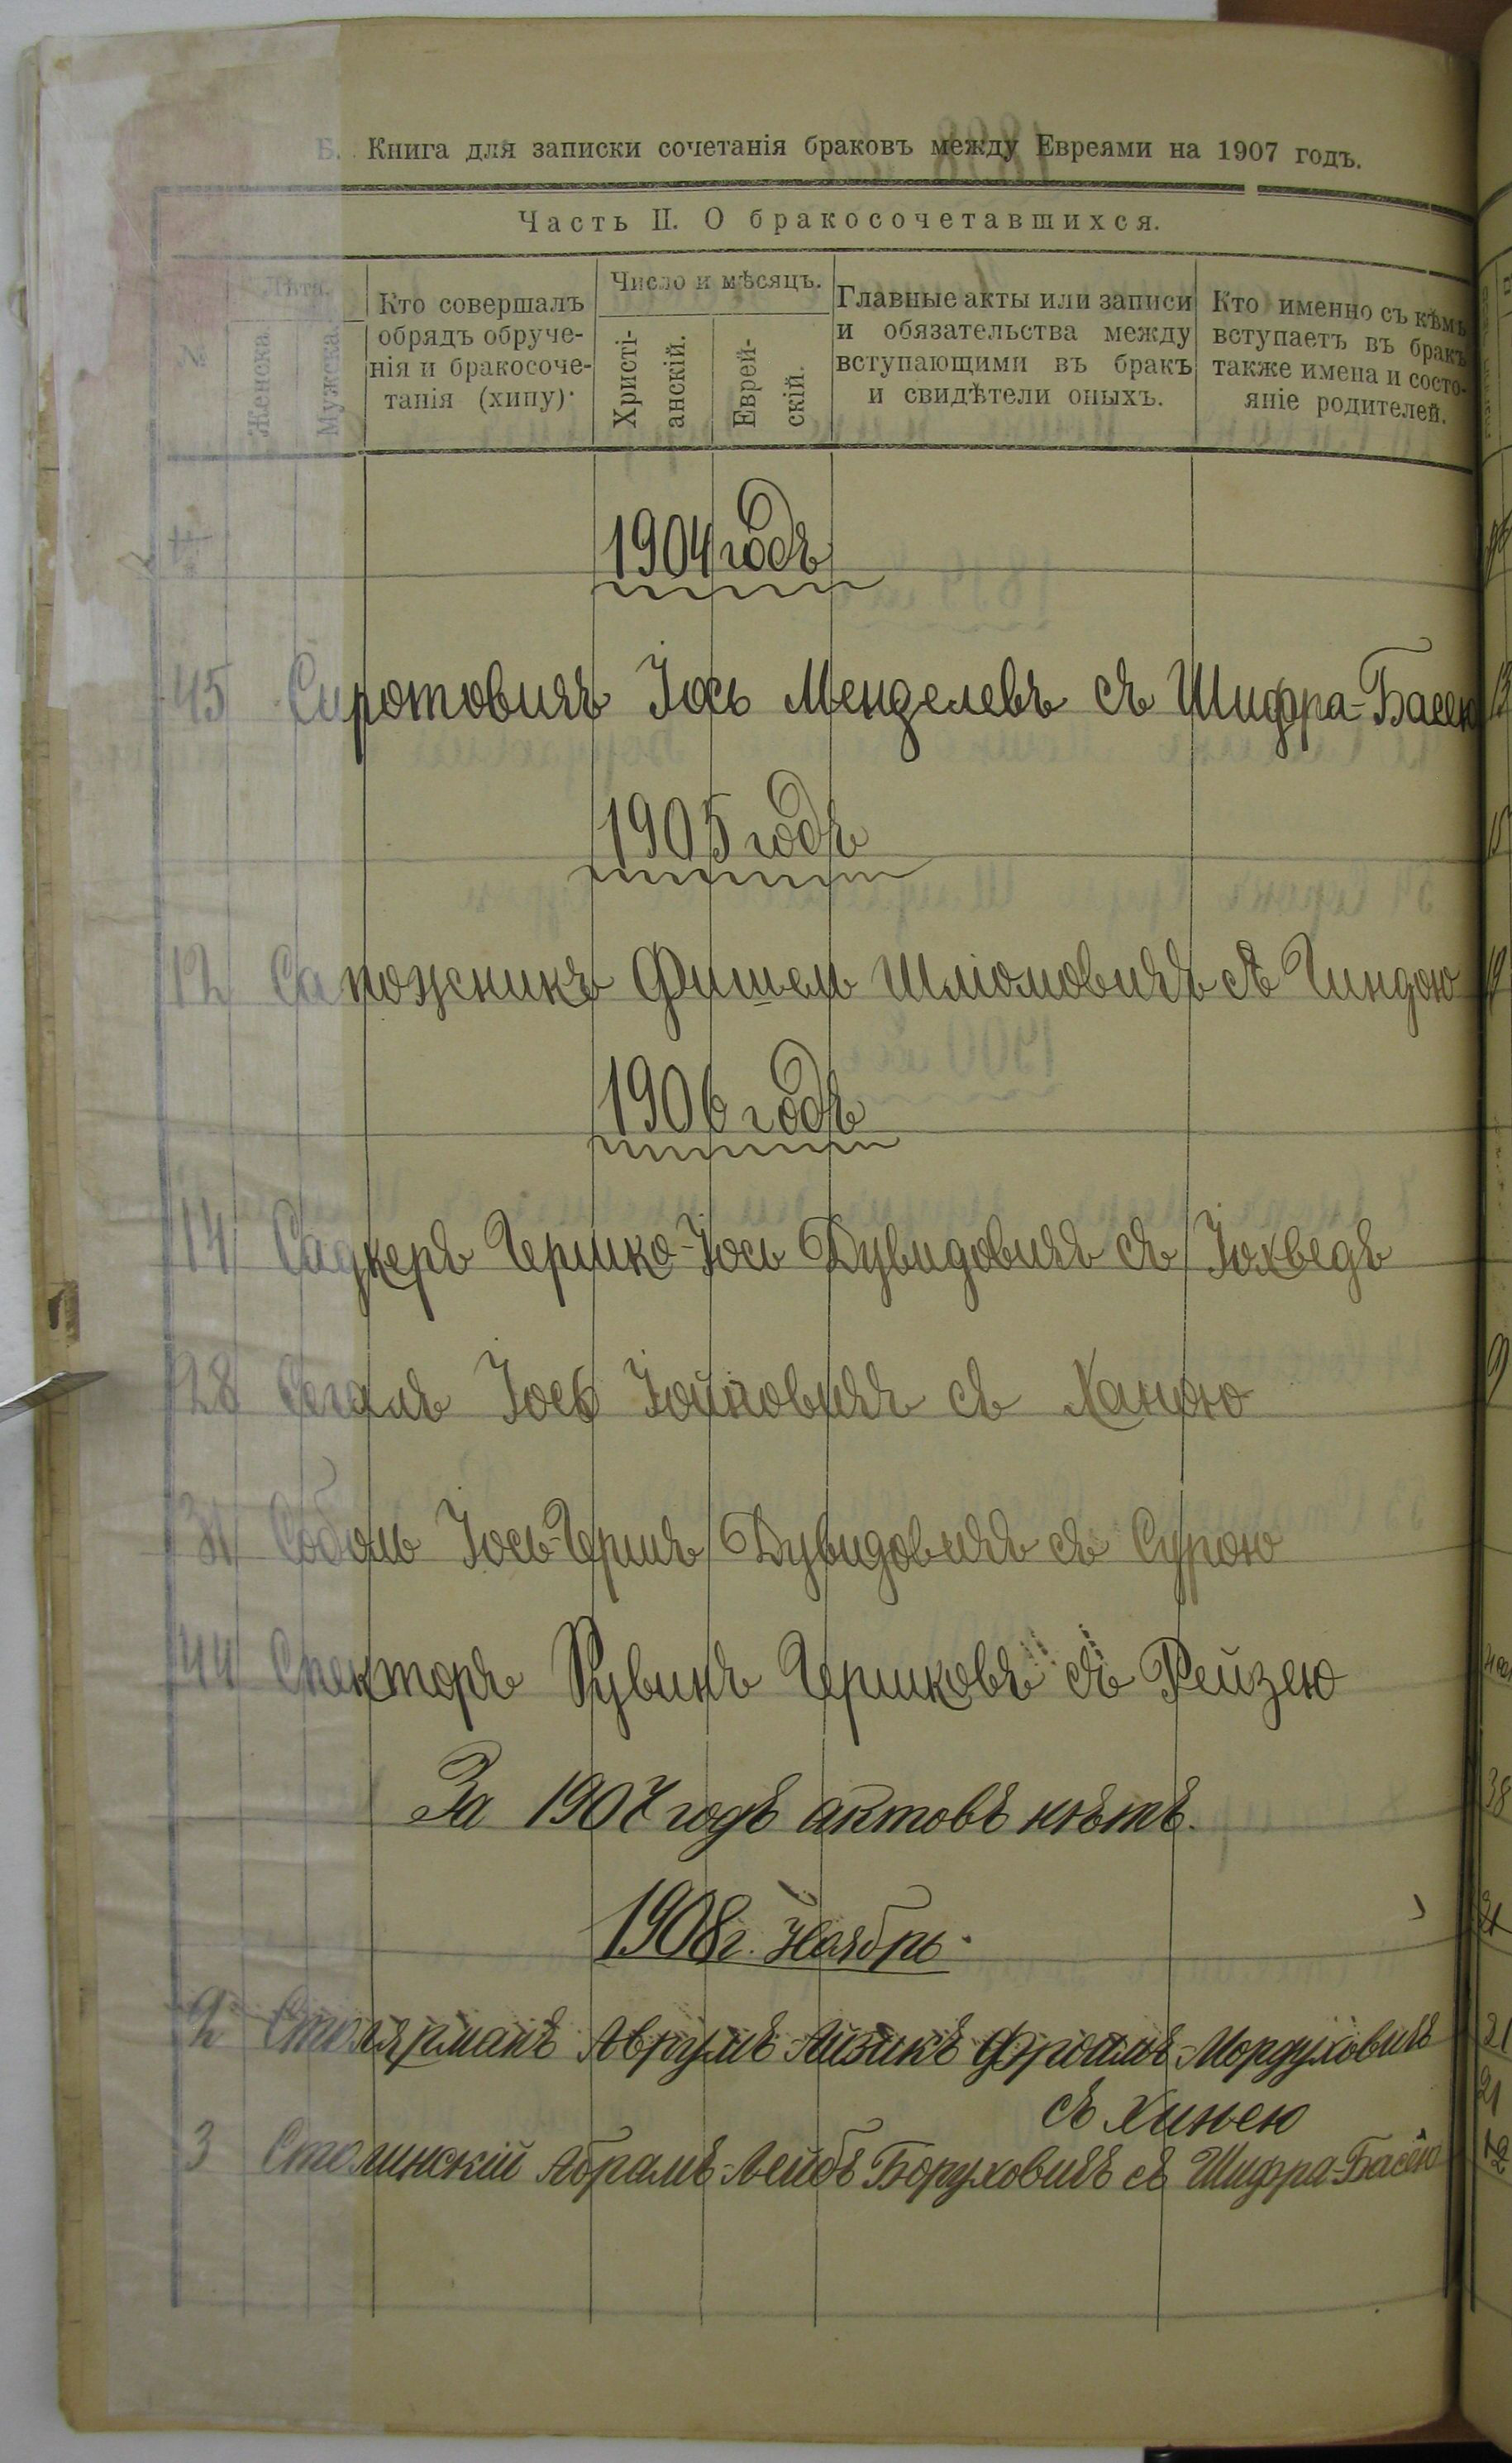 Б. Книга для записки сочетанія браковъ между Евреями на 1907 годъ.
Часть II. О бракосочетавшихся.
№
Лѣта.
Женска
Мужска
Кто совершалъ
обрядъ обруче-
нія и бракосоче-
танія (хипу).
Число и мѣсяцъ.
Христі-
анскій.
Еврей-
скій.
Главные акты или записи
и обязательства между
вступающими въ бракъ
и свидѣтели оныхъ.
Кто именно съ кѣмъ
вступаетъ въ бракъ
также имена и состо-
яніе родителей.
1904 годъ
45 Сиротовичъ Іось Менделевъ съ Шифра-Басею
1905 годъ
12 Сапожникъ Фишель Шліомовичъ съ Гиндою
1906 годъ
14 Садкеръ Гершко-Іось Дувидовичъ съ Іохведъ
28 Сегалъ Іось Іойновичъ съ Ханою
31 Соболь Іось-Гершъ Дувидовичъ съ Сурою
44 Спекторъ Рувинъ Гершковъ съ Рейзею
За 1907 годъ актовъ нѣтъ.
1908 г. Ноябрь
2 Столярманъ Аврумъ-Айзикъ Фроимъ-Мордуховичъ
съ Хинею
3 Столинскій Абрамъ-Лейбъ Боруховичъ съ Шифра-Басею